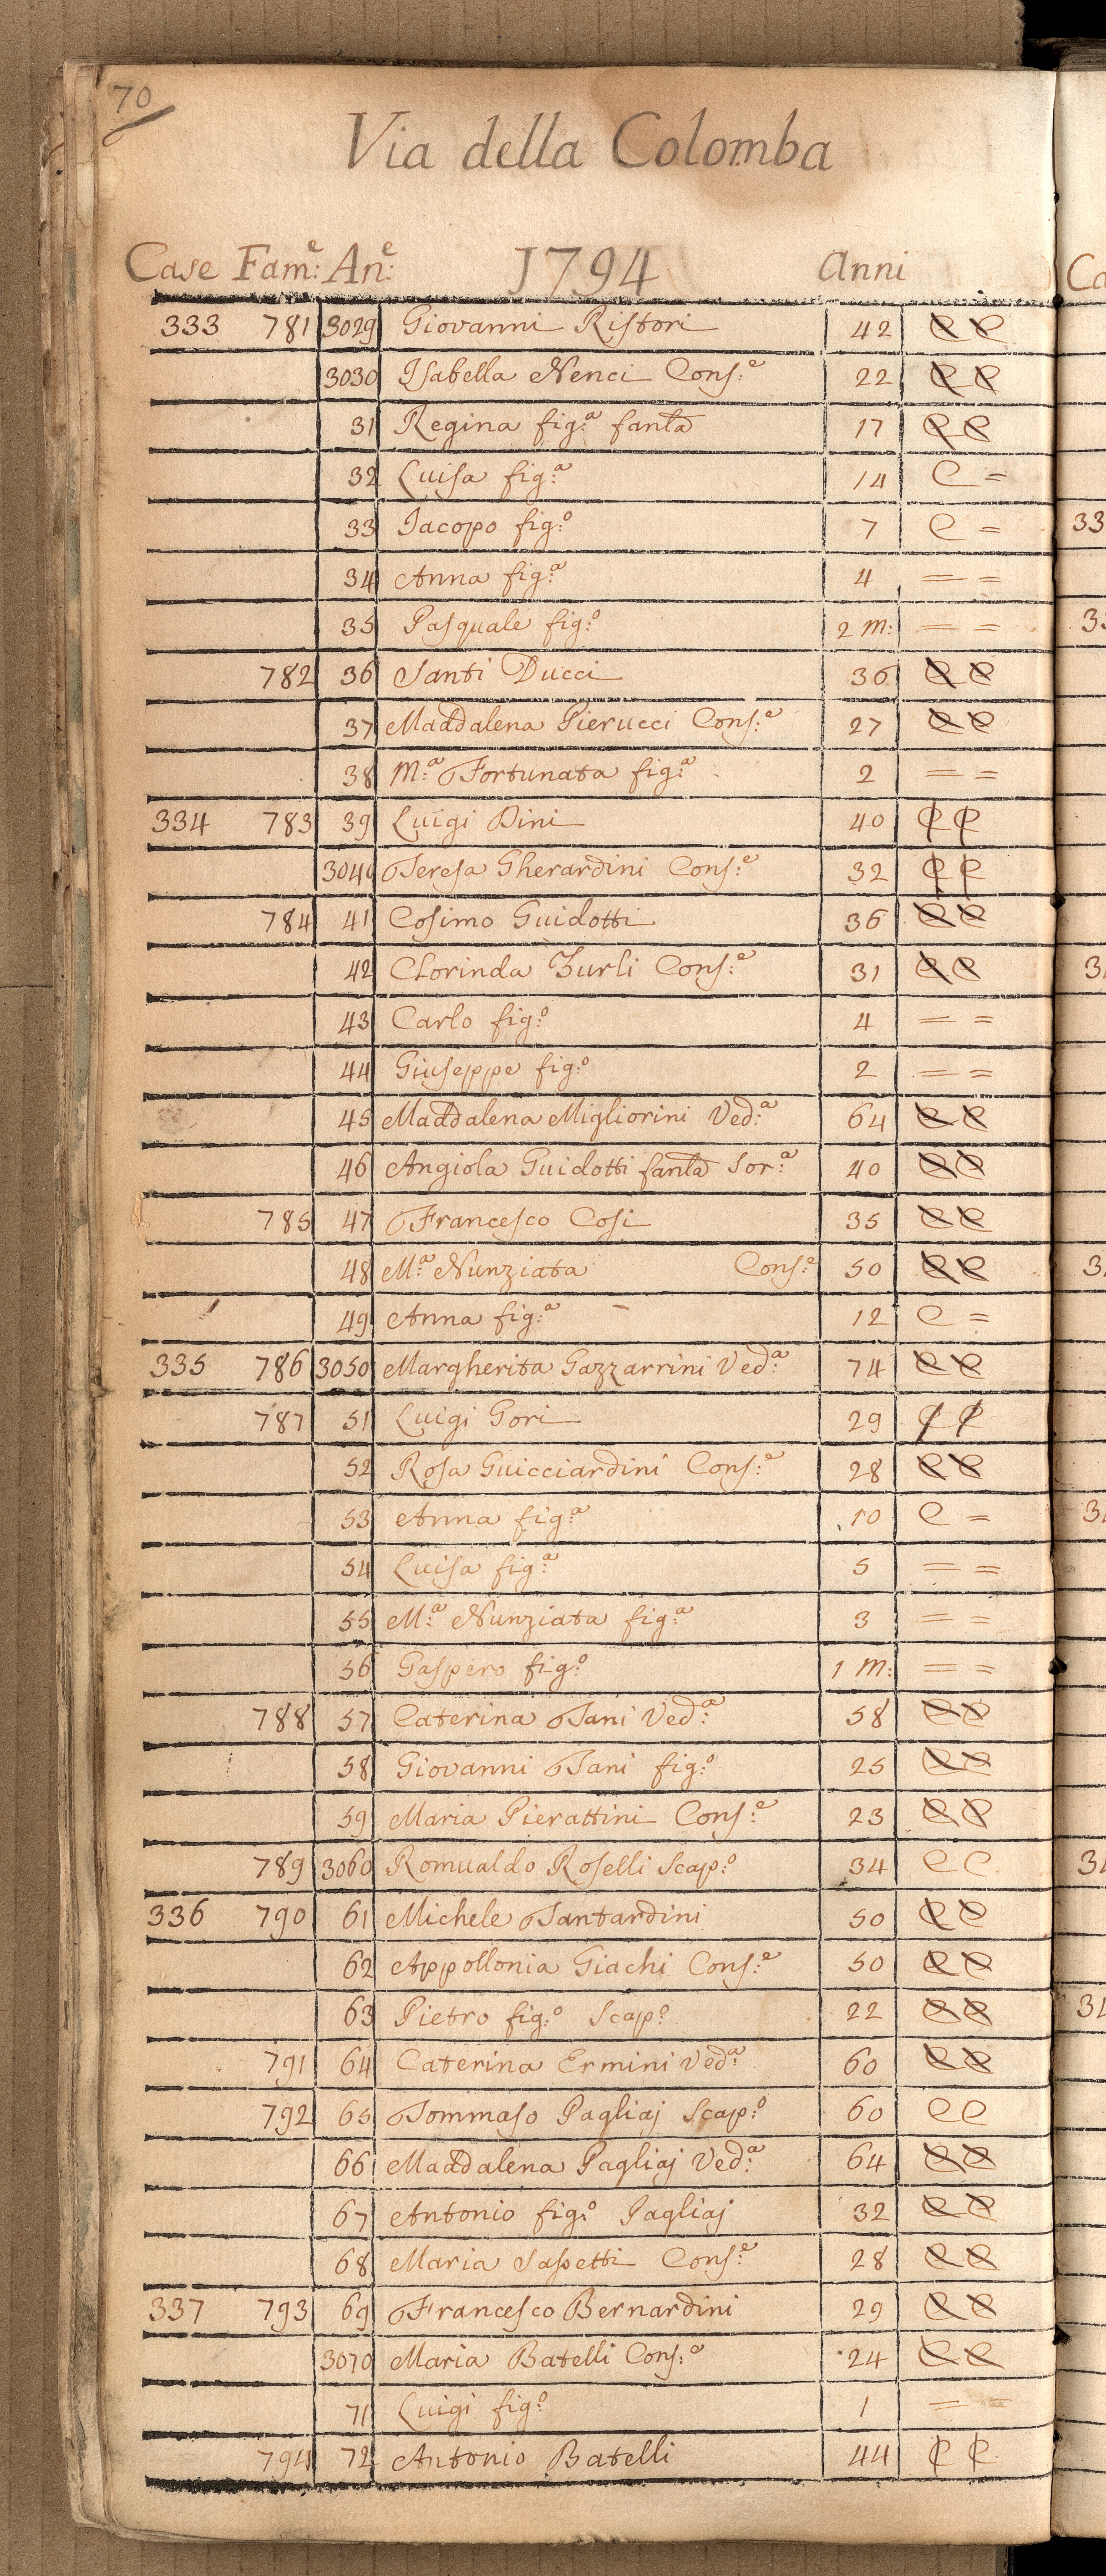 70
Via della Colomba
Case Fam:e An:e 1794 Anni
333 781 3029 Giovanni Ristori 42 C C
3030 Isabella Nenci Cons:e 22 C C
31 Regina fig:a fanla 17 C C
32 Luisa fig:a 14 C =
33 Iacopo fig:o 7 C =
34 Anna fig:a 4 = =
35 Pasquale fig:o 2 m: = =
782 36 Santi Ducci 36 C C
37 Maddalena Pierucci Cons:e 27 C C
38 M:a Fortunata fig:a 2 = =
334 783 39 Luigi Dini 40 C C
3040 Teresa Gherardini Cons:e 32 C C
784 41 Cosimo Guidotti 36 C C
42 Clorinda Zurli Cons:e 31 C C
43 Carlo fig:o 4 = =
44 Giuseppe fig:o 2 = =
45 Maddalena Migliorini Ved:a 64 C C
46 Angiola Guidotti fanla Sor:a 40 C C
785 47 Francesco Cosi 35 C C
48 M:a Nunziata Cons:e 50 C C
49 Anna fig:a 12 C =
335 786 3050 Margherita Gazzarrini Ved:a 74 C C
787 51 Luigi Gori 29 C C
52 Rosa Guicciardini Cons:e 28 C C
53 Anna fig:a 10 C =
54 Luisa fig:a 5 = =
55 M:a Nunziata fig:a 3 = =
56 Gaspero fig:o 1 m: = =
788 57 Caterina Tani Ved:a 58 C C
58 Giovanni Tani fig:o 25 C C
59 Maria Pierattini Cons:e 23 C C
789 3060 Romualdo Roselli Scap:o 34 C C
336 790 61 Michele Tantardini 50 C C
62 Appollonia Giachi Cons:e 50 C C
63 Pietro fig:o Scap:o 22 C C
791 64 Caterina Ermini Ved:a 60 C C
792 65 Tommaso Pagliaj Scap:o 60 C C
66 Maddalena Pagliaj Ved:a 64 C C
67 Antonio fig:o Pagliaj 32 C C
68 Maria Sapetti Cons:e 28 C C
337 793 69 Francesco Bernardini 29 C C
3070 Maria Batelli Cons:e 24 C C
71 Luigi fig:o 1 =
794 72 Antonio Batelli 44 C C